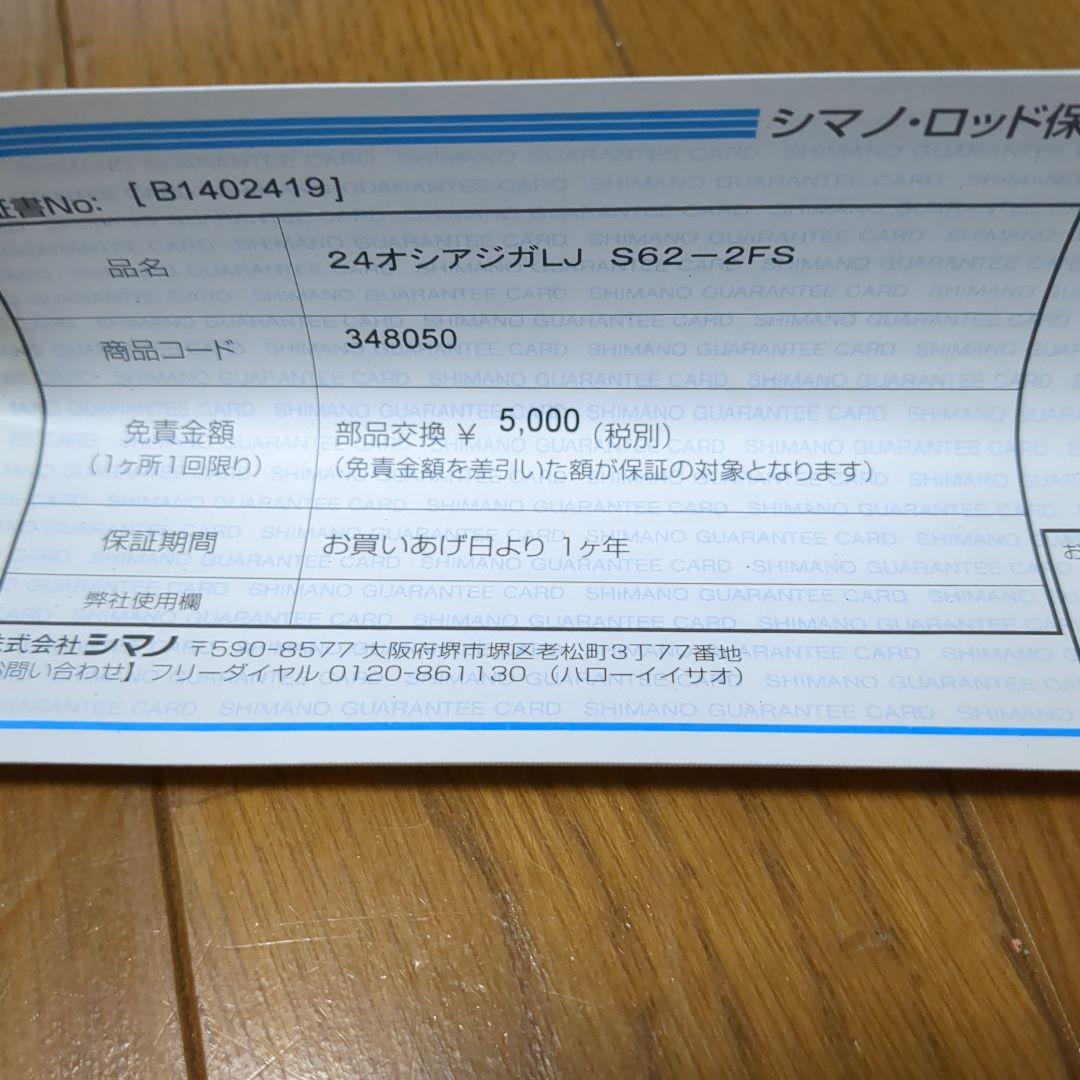 シマノ・ロッド保
証書No: [B1402419]
品名 24オシアジガLJ S62-2FS
商品コード 348050
免責金額 部品交換 ¥ 5,000 (税別)
(1ヶ所1回限り) (免責金額を差引いた額が保証の対象となります)
保証期間 お買いあげ日より 1ヶ年
弊社使用欄
お
株式会社シマノ 〒590-8577 大阪府堺市堺区老松町3丁77番地
お問い合わせ】フリーダイヤル 0120-861130 (ハローイイサオ)
SHIMANO GUARANTEE CARD